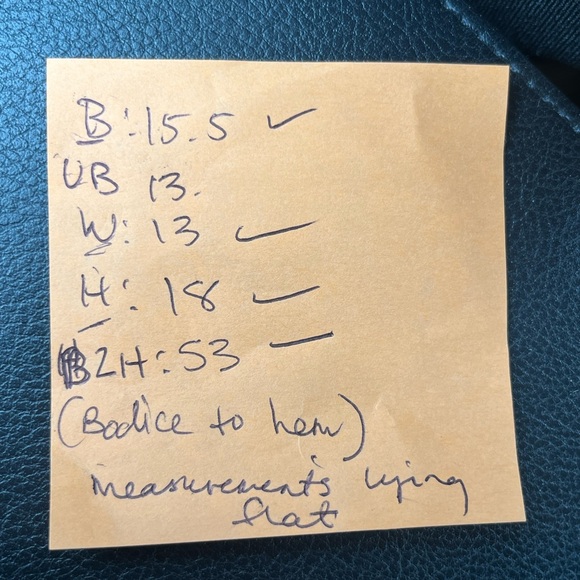 B: 15.5 ✓
UB 13.
W: 13 ✓
H: 18 ✓
B2H: 53 —
(Bodice to hem)
measurements lying
flat